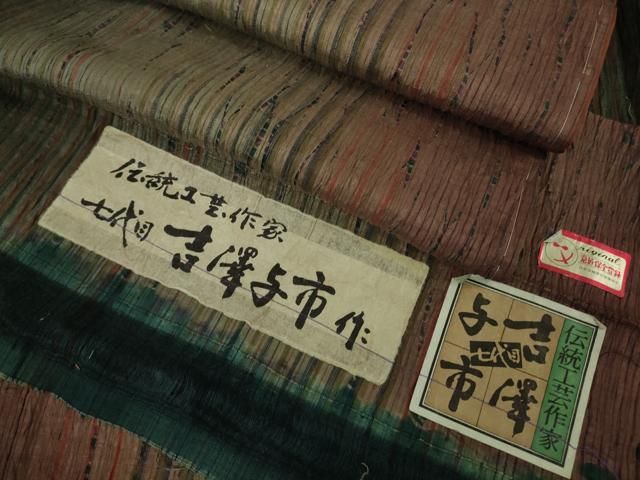 伝統工芸作家
七代目 吉澤与市 作
伝統工芸作家
吉澤
七代目
与市
Original